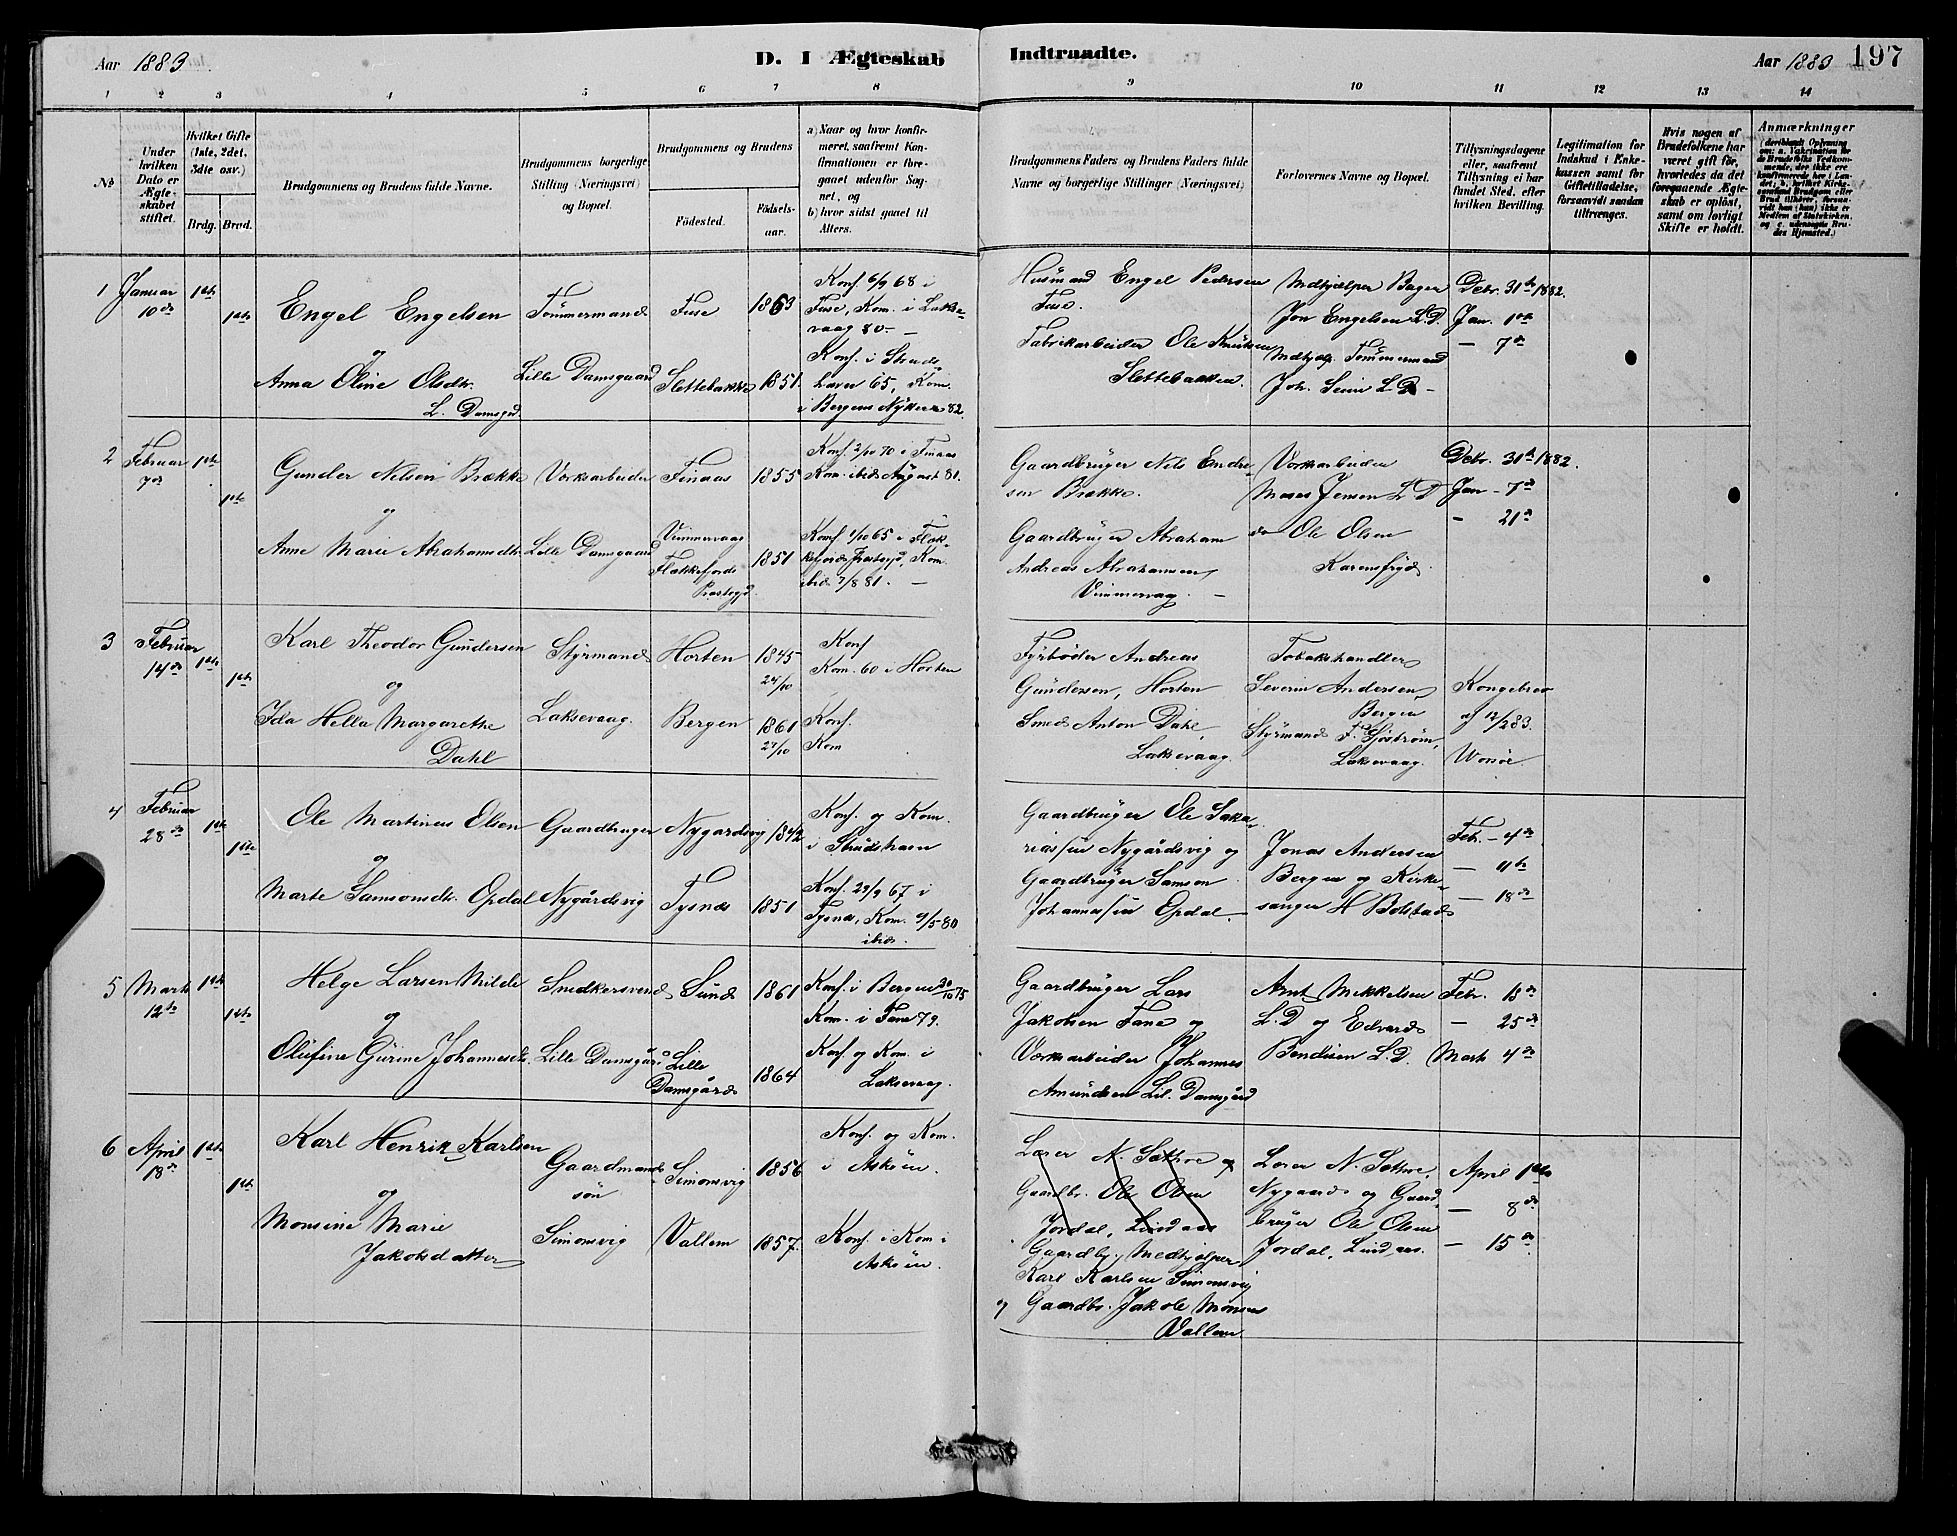 Aar 1883.
D. I Ægteskab Indtraadte.
Aar 1883
197
1 2 3 4 5 6 7 8 9 10 11 12 13 14
No
Under hvilken Dato er Ægteskabet stiftet.
Hvilket Gifte (1ste, 2det, 3die osv.)
Brdg. Brud.
Brudgommens og Brudens fulde Navne.
Brudgommens borgerlige Stilling (Næringsvei) og Bopæl.
Brudgommens og Brudens
Fødested.
Fødselsaar.
a) Naar og hvor konfirmeret, saafremt Konfirmationen er foregaaet udenfor Sognet, og
b) hvor sidst gaaet til Alters.
Brudgommens Faders og Brudens Faders fulde Navne og borgerlige Stillinger (Næringsvei)
Forlovernes Navne og Bopæl.
Tillysningsdagene eller, saafremt Tillysning ei har fundet Sted, efter hvilken Bevilling.
Legitimation for Indskud i Enkekassen samt for Giftetilladelse, forsaavidt saadan tiltrænges.
Hvis nogen af Brudefolkene har været gift før, hvorledes da det foregaaende Ægteskab er opløst, samt om lovligt Skifte er holdt.
Anmærkninger
1 Januar 10de
1ste
1ste
Engel Engelsen
og
Anna Oline Olsdtr.
L. Damsgd.
Tömmermand
Lille Damsgaard
Fuse
Slettebakke
1863
1851
Konf. 6/9 68 i
Fuse, Kom. i Lakse-
vaag 80. –
Konf. i Struds
havn 65, Kom.
i Bergens Nykirke 82.
Husmand Engel Pedersen
Fuse.
Fabrikarbeider Ole Knutsen
Slettebakken.
Mdhjælper Bager
Jon Engelsen L.D.
Mdhjælp. Tömmermand
Joh. Seim L.D –
Debr. 31te 1882.
Jan. 1ste
– 7de
2 Februar 7de
1ste
1ste
Gunder Nilsen Brække
og
Anne Marie Abrahamsdtr.
Værksarbeider
Lille Damsgaard
Finaas
Vimmervaag
Flekkefjords
Præstegd.
1855
1851
Konf. 2/10 70 i Finaas
Kom. ibid. August 81.
Konf. 1/10 65 i Flek-
kefjords Præstegd, Kom.
ibid 7/8 81. –
Gaardbruger Nils Endre-
sen Brække.
Gaardbruger Abraham
Andreas Abrahamsen,
Vimmervaag. –
Værksarbeider
Moses Jensen L.D
do Ole Olsen
Karensfryd.
Debr. 31te 1882.
Jan – 7de
– 21de
3 Februar 14de
1ste
1ste
Karl Theodor Gundersen
og
Ida Hella Margarethe
Dahl
Styrmand
Laksevaag.
Horten
Bergen
1845
24/10
1861
27/10
Konf
Kom. 60 i Horten
Konf.
Kom
Fyrböder Andreas
Gundersen, Horten
Smed Anton Dahl,
Laksevaag.
Tobakshandler
Severin Andersen,
Bergen
Styrmand F. Sjöström,
Laksevaag.
Kongebrev
af 12/2 83.
4 Februar 28de
1ste
1ste
Ole Martinus Olsen
og
Marte Samsonsdtr. Opdal
Gaardbruger
Nygårdsvig
Nygardsvig
Tysnæs
1842
1851
Konf. og Kom.
i Strudshavn
Konf. 29/9 67 i
Tysnæs, Kom. 9/5 80
ibid.
Gaardbruger Ole Saka-
riassen Nygårdsvig og
Gaardbruger Samson
Johannessen Opdal. –
Jonas Andersen
Bergen og Kirke-
sanger H Bolstad
Feb. – 4de
– 11te
– 18de
5 Marts 12te
1ste
1ste
Helge Larsen Milde
og
Olufine Gurine Johannesdtr.
Snedkersvend
Lille Damsgård
Sund
Lille
Damsgård
1861
1864
Konf. i Bergen 30/10 75
Kom. i Fane 79.
Konf. og Kom. i
Laksevaag.
Gaardbruger Lars
Jakobsen Fane og
Værksarbeider Johannes
Amundsen Lil. Damsgård
Arnt Mikkelsen
L.D og Edvard
Bendixen L.D.
Febr. 18de
– 25de
Marts 4de
6 April 18de
1ste
1ste
Karl Henrik Karlsen
og
Monsine Marie
Jakobsdatter
Gaardmands-
sön
Simonsvig
Simonsvig
Vallem
1856
1857.
Konf. og Kom.
i Asköen.
Konf. i Kom. i
Asköen.
Lærer N. Sæthre og
Gaardbr. Ole Olsen
Jordal, Lindaas
Gaardbr., Medhjælper
Karl Karlsen Simonsvig
og Gaardbr. Jakob Monsen
Vallem.
Lærer N. Sæthre,
Nygaard og Gaard-
bruger Ole Olsen
Jordal, Lindaas.
April 1ste
– 8de
– 15de